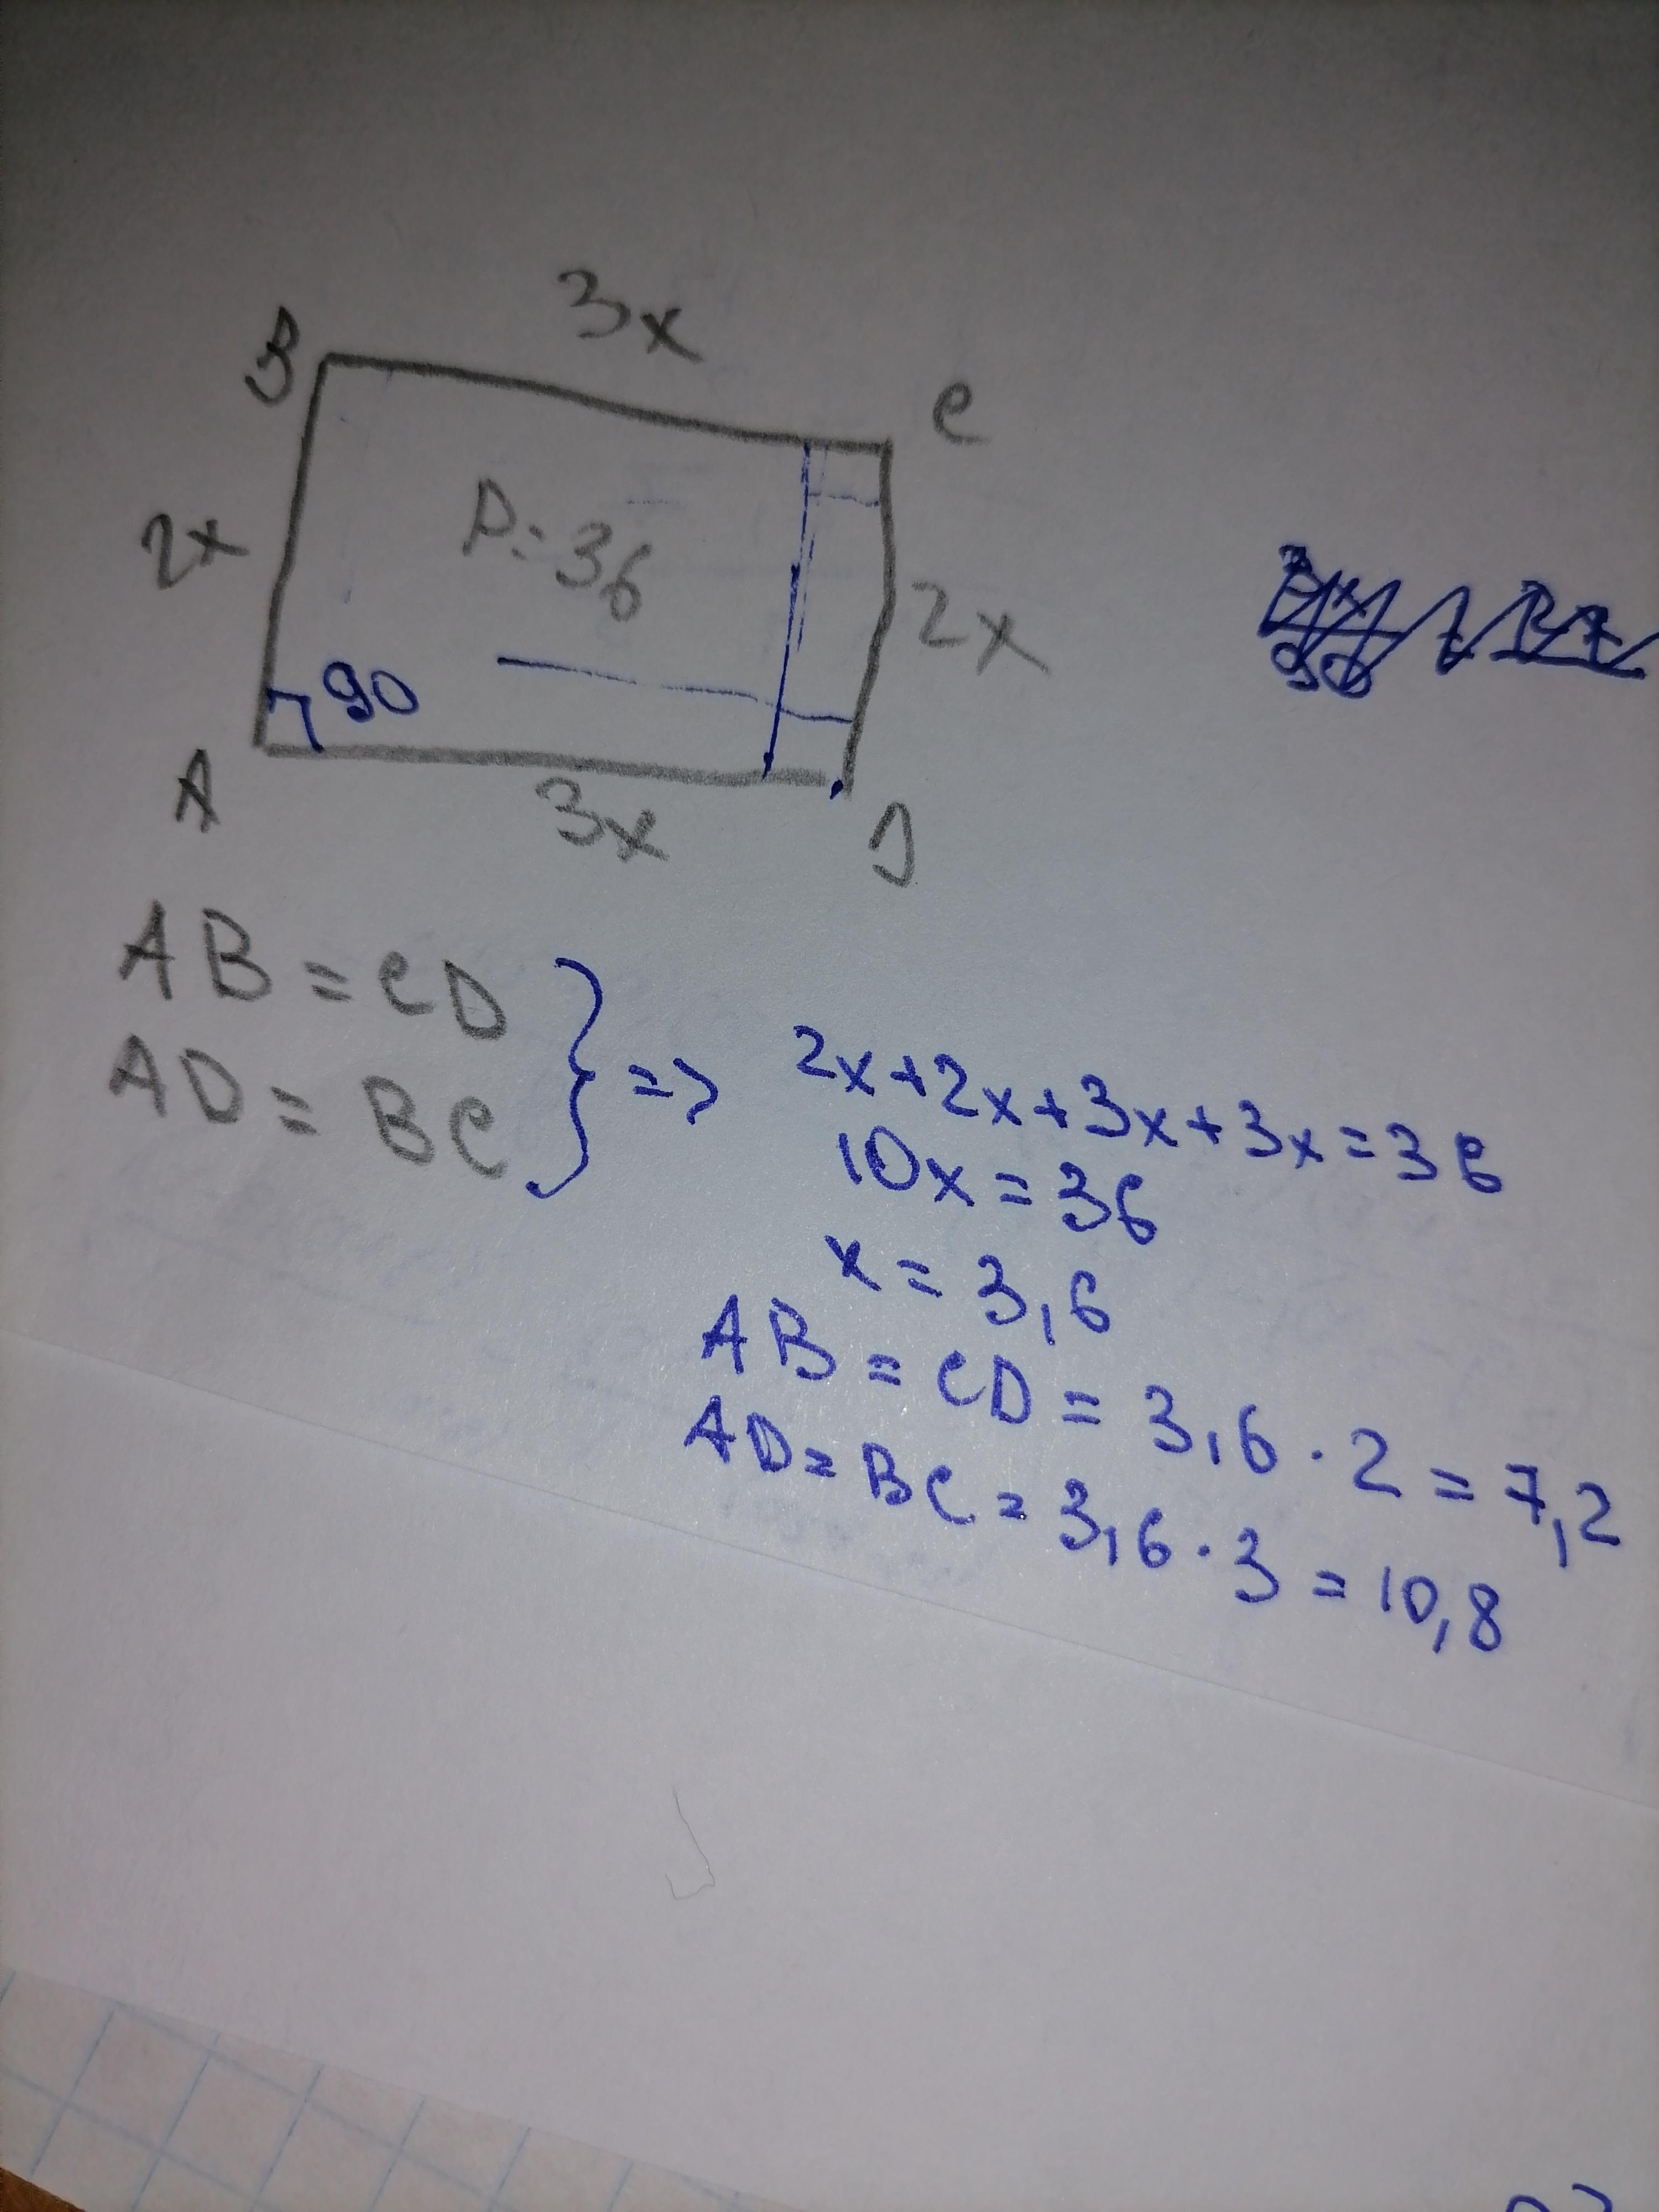 3x
B
C
P=36
2x
2x
90
A
3x
D
AB=CD
AD=BC
} => 2x+2x+3x+3x=36
10x=36
x=3,6
AB=CD=3,6·2=7,2
AD=BC=3,6·3=10,8